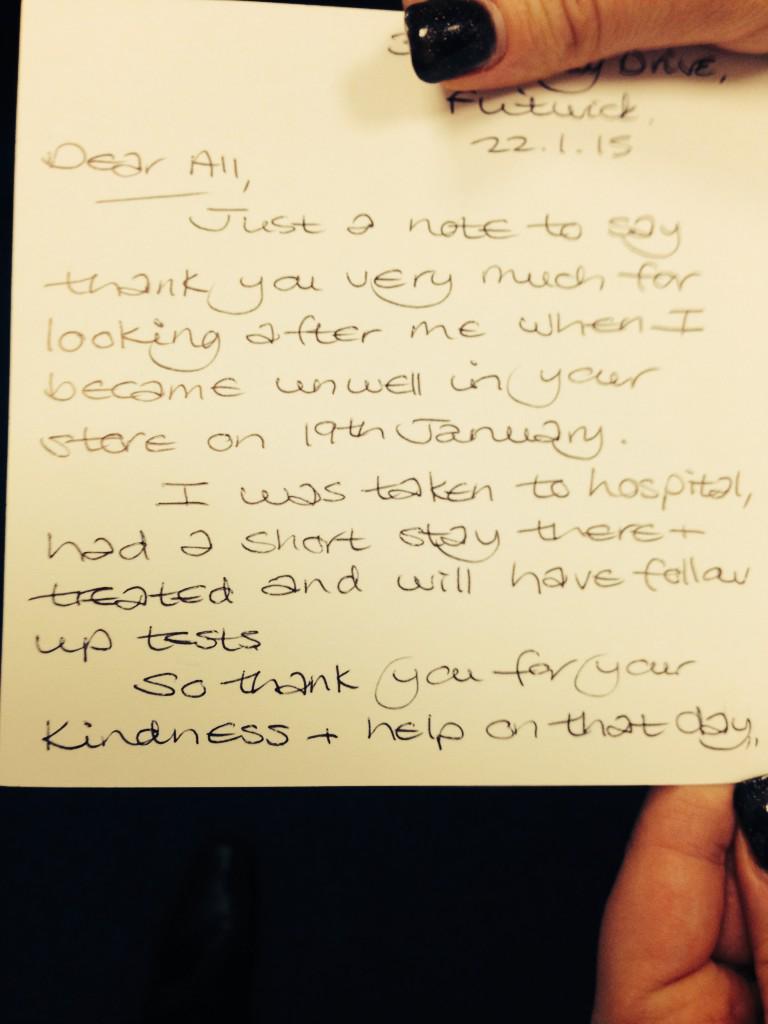 Drive,
Flitwick.
22.1.15
Dear All,
Just a note to say
thank you very much for
looking after me when I
became unwell in your
store on 19th January.
I was taken to hospital,
had a short stay there +
treated and will have follow
up tests
So thank you for your
kindness + help on that day,